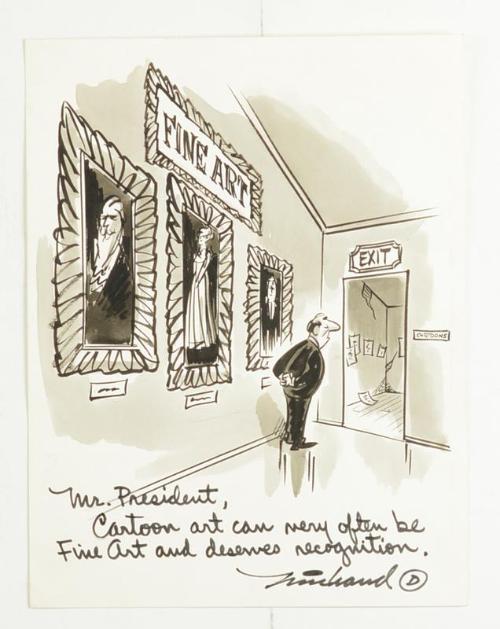 FINE ART
EXIT
CARTOONS
Mr. President,
Cartoon art can very often be
Fine Art and deserves recognition.
D